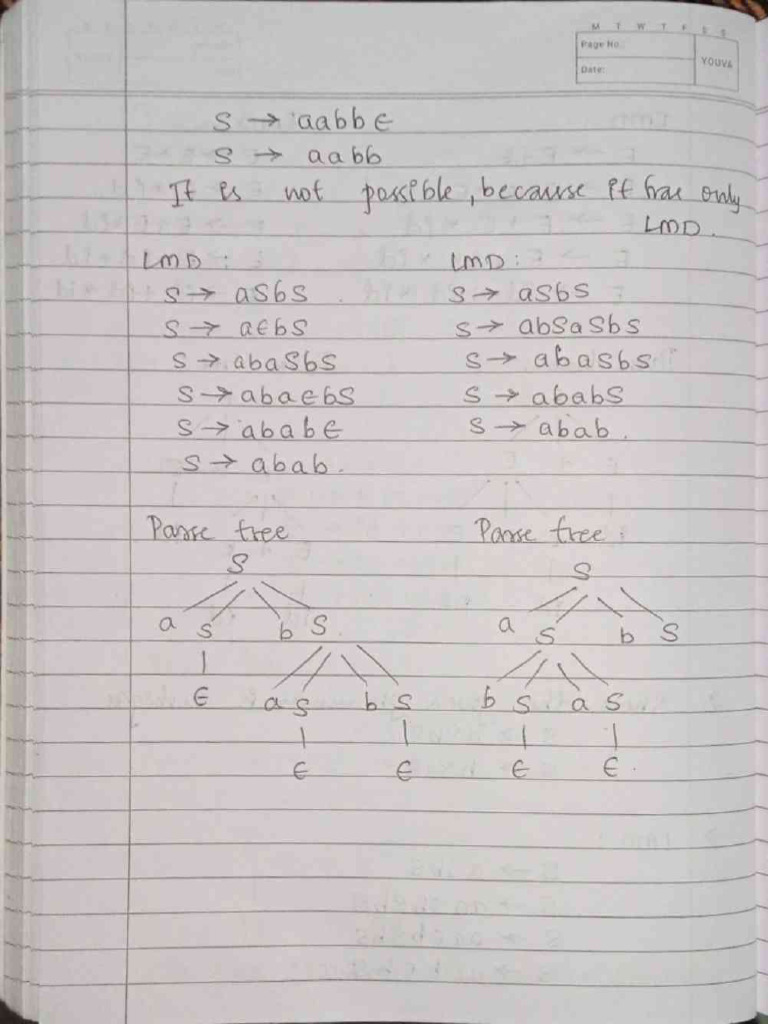 M T W T F S S
Page No.:
YOUVA
Date:
S → aabb ∈
S → aabb
It is not possible, because it has only
LMD.
LMD : LMD :
S → aSbS S → aSbS
S → a∈bS S → abSaSbS
S → abaSbS S → abaSbS
S → aba∈bS S → ababS
S → abab∈ S → abab.
S → abab.
Parse tree Parse tree :
S S
a S b S a S b S
∈ a S b S b S a S
∈ ∈ ∈ ∈.